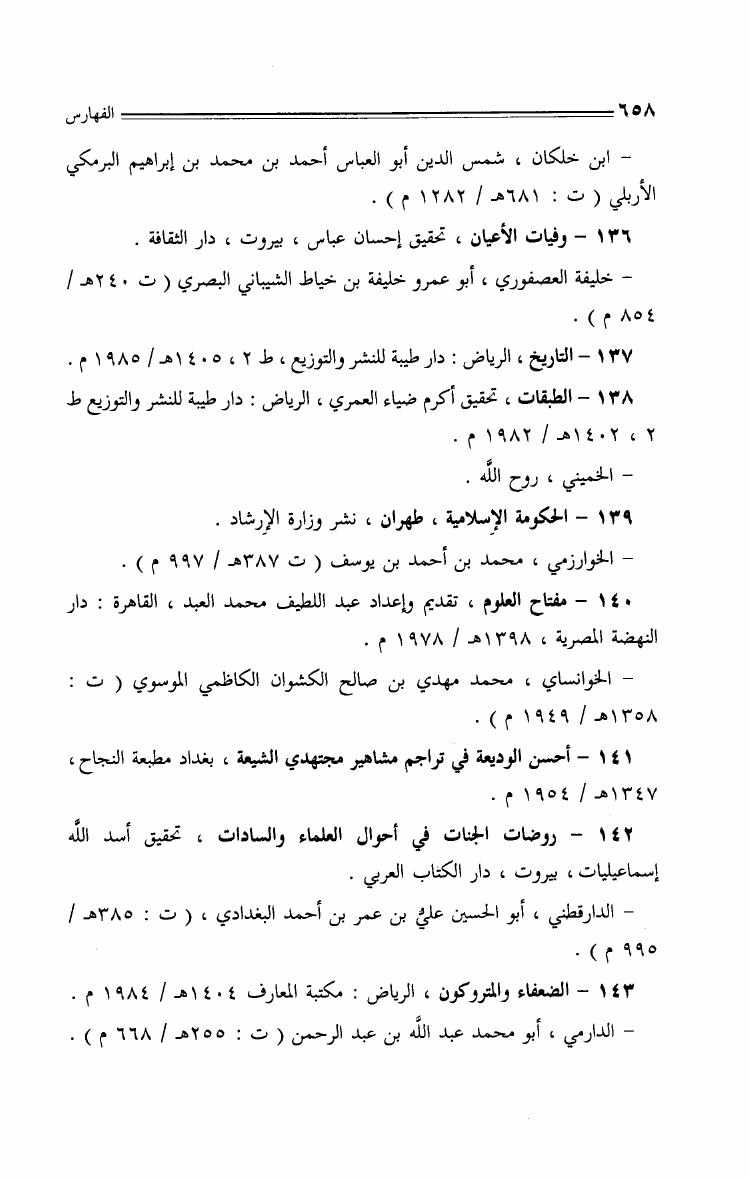 ٦٥٨ الفهارس
- ابن خلكان ، شمس الدين أبو العباس أحمد بن محمد بن إبراهيم البرمكي
الأربلي ( ت : ٦٨١هـ / ١٢٨٢ م ) .
١٣٦ - وفيات الأعيان ، تحقيق إحسان عباس ، بيروت ، دار الثقافة .
- خليفة العصفوري ، أبو عمرو خليفة بن خياط الشيباني البصري ( ت ٢٤٠هـ /
٨٥٤ م ) .
١٣٧ - التاريخ ، الرياض : دار طيبة للنشر والتوزيع ، ط ٢ ، ١٤٠٥هـ / ١٩٨٥ م .
١٣٨ - الطبقات ، تحقيق أكرم ضياء العمري ، الرياض : دار طيبة للنشر والتوزيع ط
٢ ، ١٤٠٢هـ / ١٩٨٢ م .
- الخميني ، روح اللَّه .
١٣٩ - الحكومة الإسلامية ، طهران ، نشر وزارة الإرشاد .
- الخوارزمي ، محمد بن أحمد بن يوسف ( ت ٣٨٧هـ / ٩٩٧ م ) .
١٤٠ - مفتاح العلوم ، تقديم وإعداد عبد اللطيف محمد العبد ، القاهرة : دار
النهضة المصرية ، ١٣٩٨هـ / ١٩٧٨ م .
- الخوانساي ، محمد مهدي بن صالح الكشوان الكاظمي الموسوي ( ت :
١٣٥٨هـ / ١٩٤٩ م ) .
١٤١ - أحسن الوديعة في تراجم مشاهير مجتهدي الشيعة ، بغداد مطبعة النجاح ،
١٣٤٧هـ / ١٩٥٤ م .
١٤٢ - روضات الجنات في أحوال العلماء والسادات ، تحقيق أسد اللَّه
إسماعيليات ، بيروت ، دار الكتاب العربي .
- الدارقطني ، أبو الحسين عليُّ بن عمر بن أحمد البغدادي ، ( ت : ٣٨٥هـ /
٩٩٥ م ) .
١٤٣ - الضعفاء والمتروكون ، الرياض : مكتبة المعارف ١٤٠٤هـ / ١٩٨٤ م .
- الدارمي ، أبو محمد عبد اللَّه بن عبد الرحمن ( ت : ٢٥٥هـ / ٦٦٨ م ) .